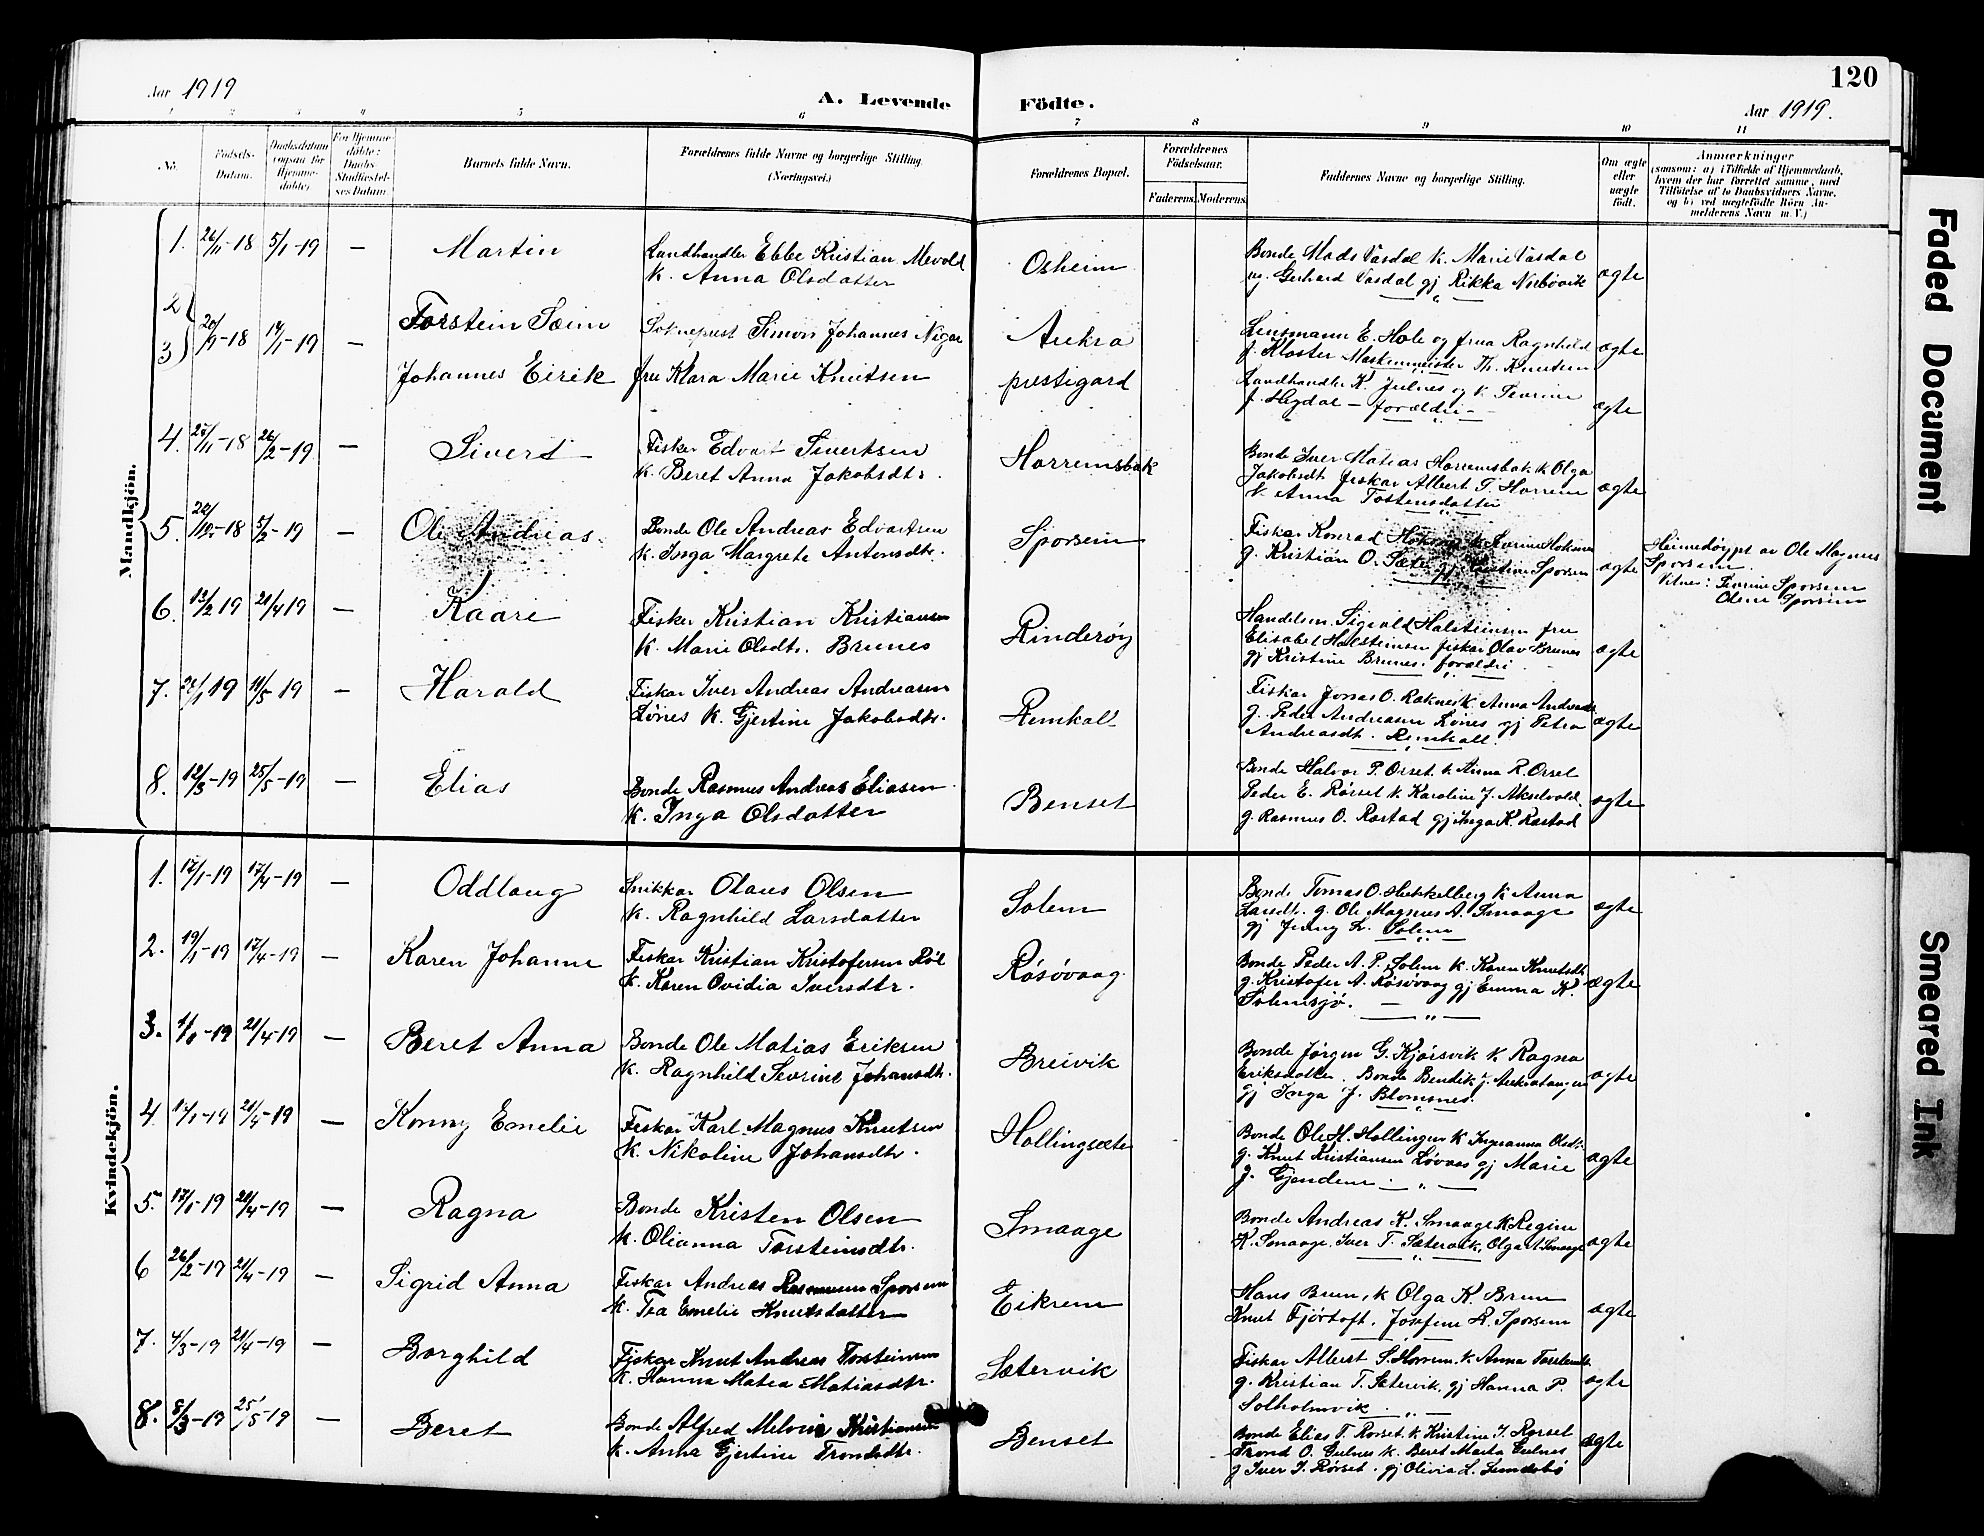 120
Aar 1919
A. Levende
Födte.
Aar 1919.
1 2 3 4 5 6 7 8 9 10 11
No.
Födsels-
Datum.
Daabsdatum
(ogsaa for
Hjemme-
döbte)
For Hjemme-
döbte:
Daabs-
Stadfæstel-
ses Datum.
Barnets fulde Navn.
Forældrenes fulde Navne og borgerlige Stilling
(Næringsvei.)
Forældrenes Bopæl.
Forældrenes
Födselsaar.
Faderens. Moderens.
Faddernes Navne og borgerlige Stilling.
Om ægte
eller
uægte
födt.
Anmærkninger
(saasom: a) i Tilfælde af Hjemmedaab,
hvem der har forrettet samme, med
Tilföielse af to Daabsvidners Navne,
og b) ved uægtefödte Börn An-
melderens Navn m. V.)
Mandkjön.
1. 26/11-18 5/1-19 — Martin
Landhandler Ebbe Kristian Mevold
k. Anna Olsdatter
Osheim
Bonde Mads Vasdal k. Marie Vasdal
ug. Gerhard Vasdal gj Rikka
ægte
2
3 1/1-19 —
Torstein Sæim
Johannes Eirik
Sokneprest Simon Johannes
fru Klara Marie Knutsen
Aukra
prestigard
Lensmann E. Hole og frua Ragnhild
f. Kloster Maskinmeister Th. Knutsen
ægte
Landhandler K. Julnes og k.
f. Hegdal — forældri —
ægte
4. 27/11-18 26/2-19 — Sivert
Fisker Edvart Sivertsen
k. Beret Anna Jakobsdtr.
Harremsbak
Bonde Iver Matias Harremsbak k. Olga
Jakobsdt fiskar Albert T. Harrem
k. Anna Tostensdatter
ægte
5. -18 5/2-19 — Ole Andreas
Bonde Ole Andreas Edvartsen
k. Inga Margrete Antonsdtr.
Sporsem
Fisker Konrad
g. Kristian O. Sæter Sporsem
ægte
Heimedøypt av Ole Magnus
Sporsem.
Vitner: Sporsem
Oline Sporsem
6. 12/2 19 21/4 19 — Kaare
Fisker Kristian Kristiansen
k. Marie Olsdtr. Brunes
Rinderøy
Handelsm. Sigvald Halsteinsen fru
Elisabet Halsteinsen fiskar Olav Brunes
gj Kristine Brunes. forældri
ægte
7. 19 11/5 19 — Harald
Fiskar Iver Andreas Andreasen
Lönes k. Gjertine Jakobsdtr.
Remkall
Fiskar Jonas O. k. Anna
g. Peder Andreasen Lönes gj Petra
Andreasdt. Remkall.
ægte
8. 12/3-19 25/5-19 — Elias
Bonde Rasmus Andreas Eliasen
k. Inga Olsdatter
Benset
Bonde Halvor P. Orset k. Anna R. Orset
Peder E. Rörset k. Karoline J. Akselvold
g. Rasmus O. Rastad gj Inga K. Rastad
ægte
Kvindekjön.
1. 12/1-19 17/4-19 — Oddlaug
Snikkar Olaus Olsen
k. Ragnhild Larsdatter
Solem
Bonde Tomas O. k. Anna
Larsdt. g. Ole Magnus A. Smaage
gj Jenny L. Solem
ægte
2. 19/1-19 17/4-19 — Karen Johanne
Fiskar Kristian Kristofersen
k. Karen Ovidia Iversdtr.
Rösövaag
Bonde Peder A. P. Solem k. Karen Knutsdt
g. Kristofer A. Rösövaag gj Emma K.
Solemsjö.
ægte
3. -19 21/4-19 — Beret Anna
Bonde Ole Matias Eriksen
k. Ragnhild Severine Johansdtr.
Breivik
Bonde Jörgen G. Kjörsvik k. Ragna
Eriksdatter. Bonde Bendik J.
gj Inga J. Blomsnes.
ægte
4. -19 21/4-19 — Konny Emelie
Fiskar Karl Magnus Knutsen
k. Nikoline Johansdtr.
Hollingsæte
Bonde Ole H. Hollingen k Olsdt.
g. Knut Kristiansen gj Marie
J. Gjendem
ægte
5. 17/1-19 21/4-19 — Ragna
Bonde Kristen Olsen
k. Olianna Torsteinsdtr.
Smaage
Bonde Andreas K. Smaage k Regine
K. Smaage. Iver T. Sætervik. Olga A. Smaage
ægte
6 26/2-19 21/4-19 — Sigrid Anna
Fiskar Andreas Rasmussen Sporsem
k. Tea Emelie Knutsdatter
Eikrem
Hans Brun, k Olga K. Brun
Knut Fjörtoft. Josefine R. Sporsem
ægte
7. 4/3-19 21/4-19 — Borghild
Fiskar Knut Andreas Torsteinsen
k. Hanna Matea Matiasdtr.
Sætervik
Fiskar Albert S. Horrem. k. Anna
g. Kristian T. Sætervik. gj Hanna P.
Solholmvik
ægte
8. 8/3-19 25/5-19 — Beret
Bonde Alfred Melvin Kristiansen
k. Anna Gjertine Trondsdtr.
Benset
Bonde Elias T. Rorset k. Kristine J. Rorset
Trond O. Gulnes k. Beret Marta Gulnes
g Iver J. Rörset. gj Olivia L. Sundsbö
ægte
Faded Document
Smeared Ink